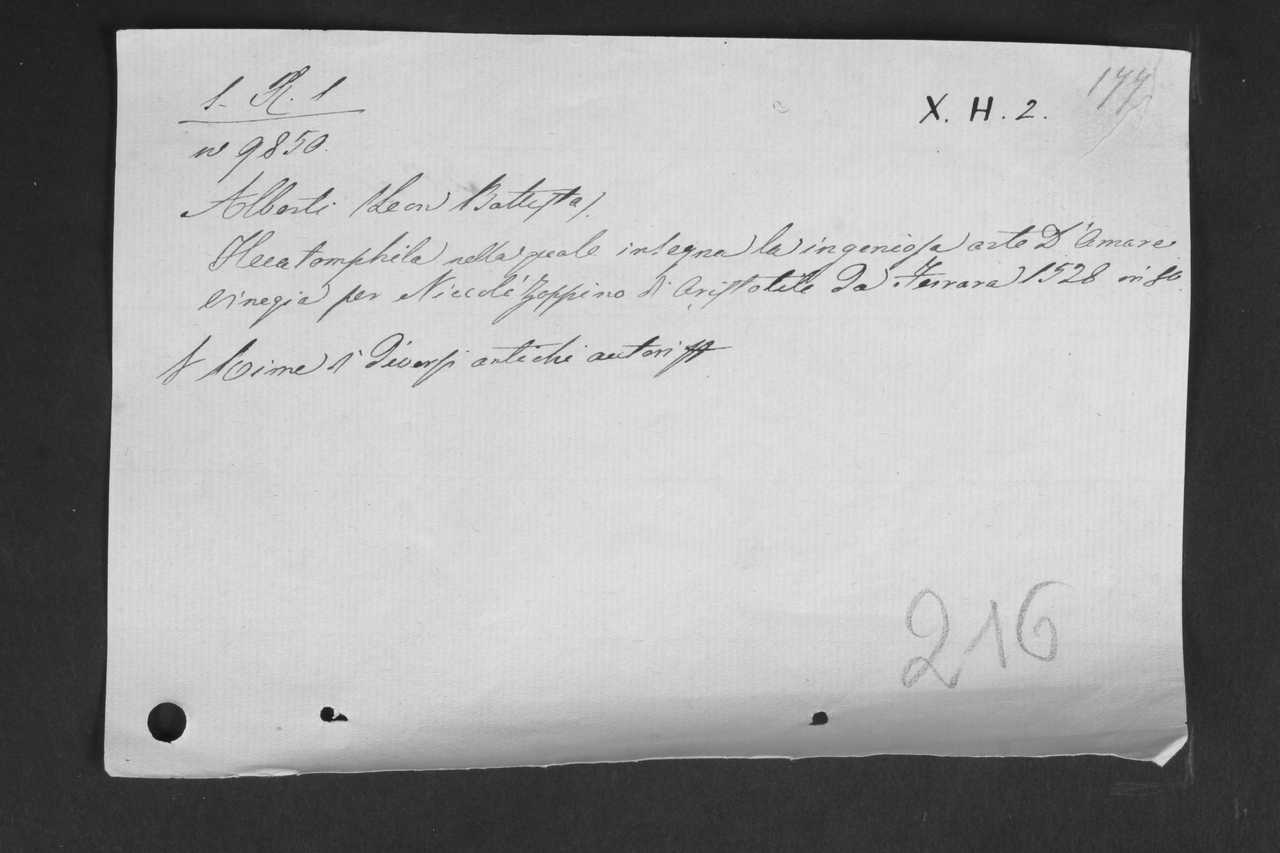 1- R. 1
X. H. 2.
177
nº 9850.
Alberti (Leon Battista)
Hecatomphila nella quale insegna la ingeniosa arte D'Amare
Vinegia per Niccolò Zoppino di Aristotile da Ferrara 1528 in 8º.
Rime di diversi antichi autori
216